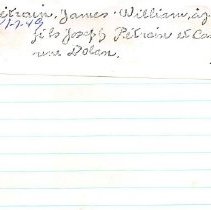 étrain, James William, âg
1-7-49
fils Joseph Pétrain et Ca
née Dolan.